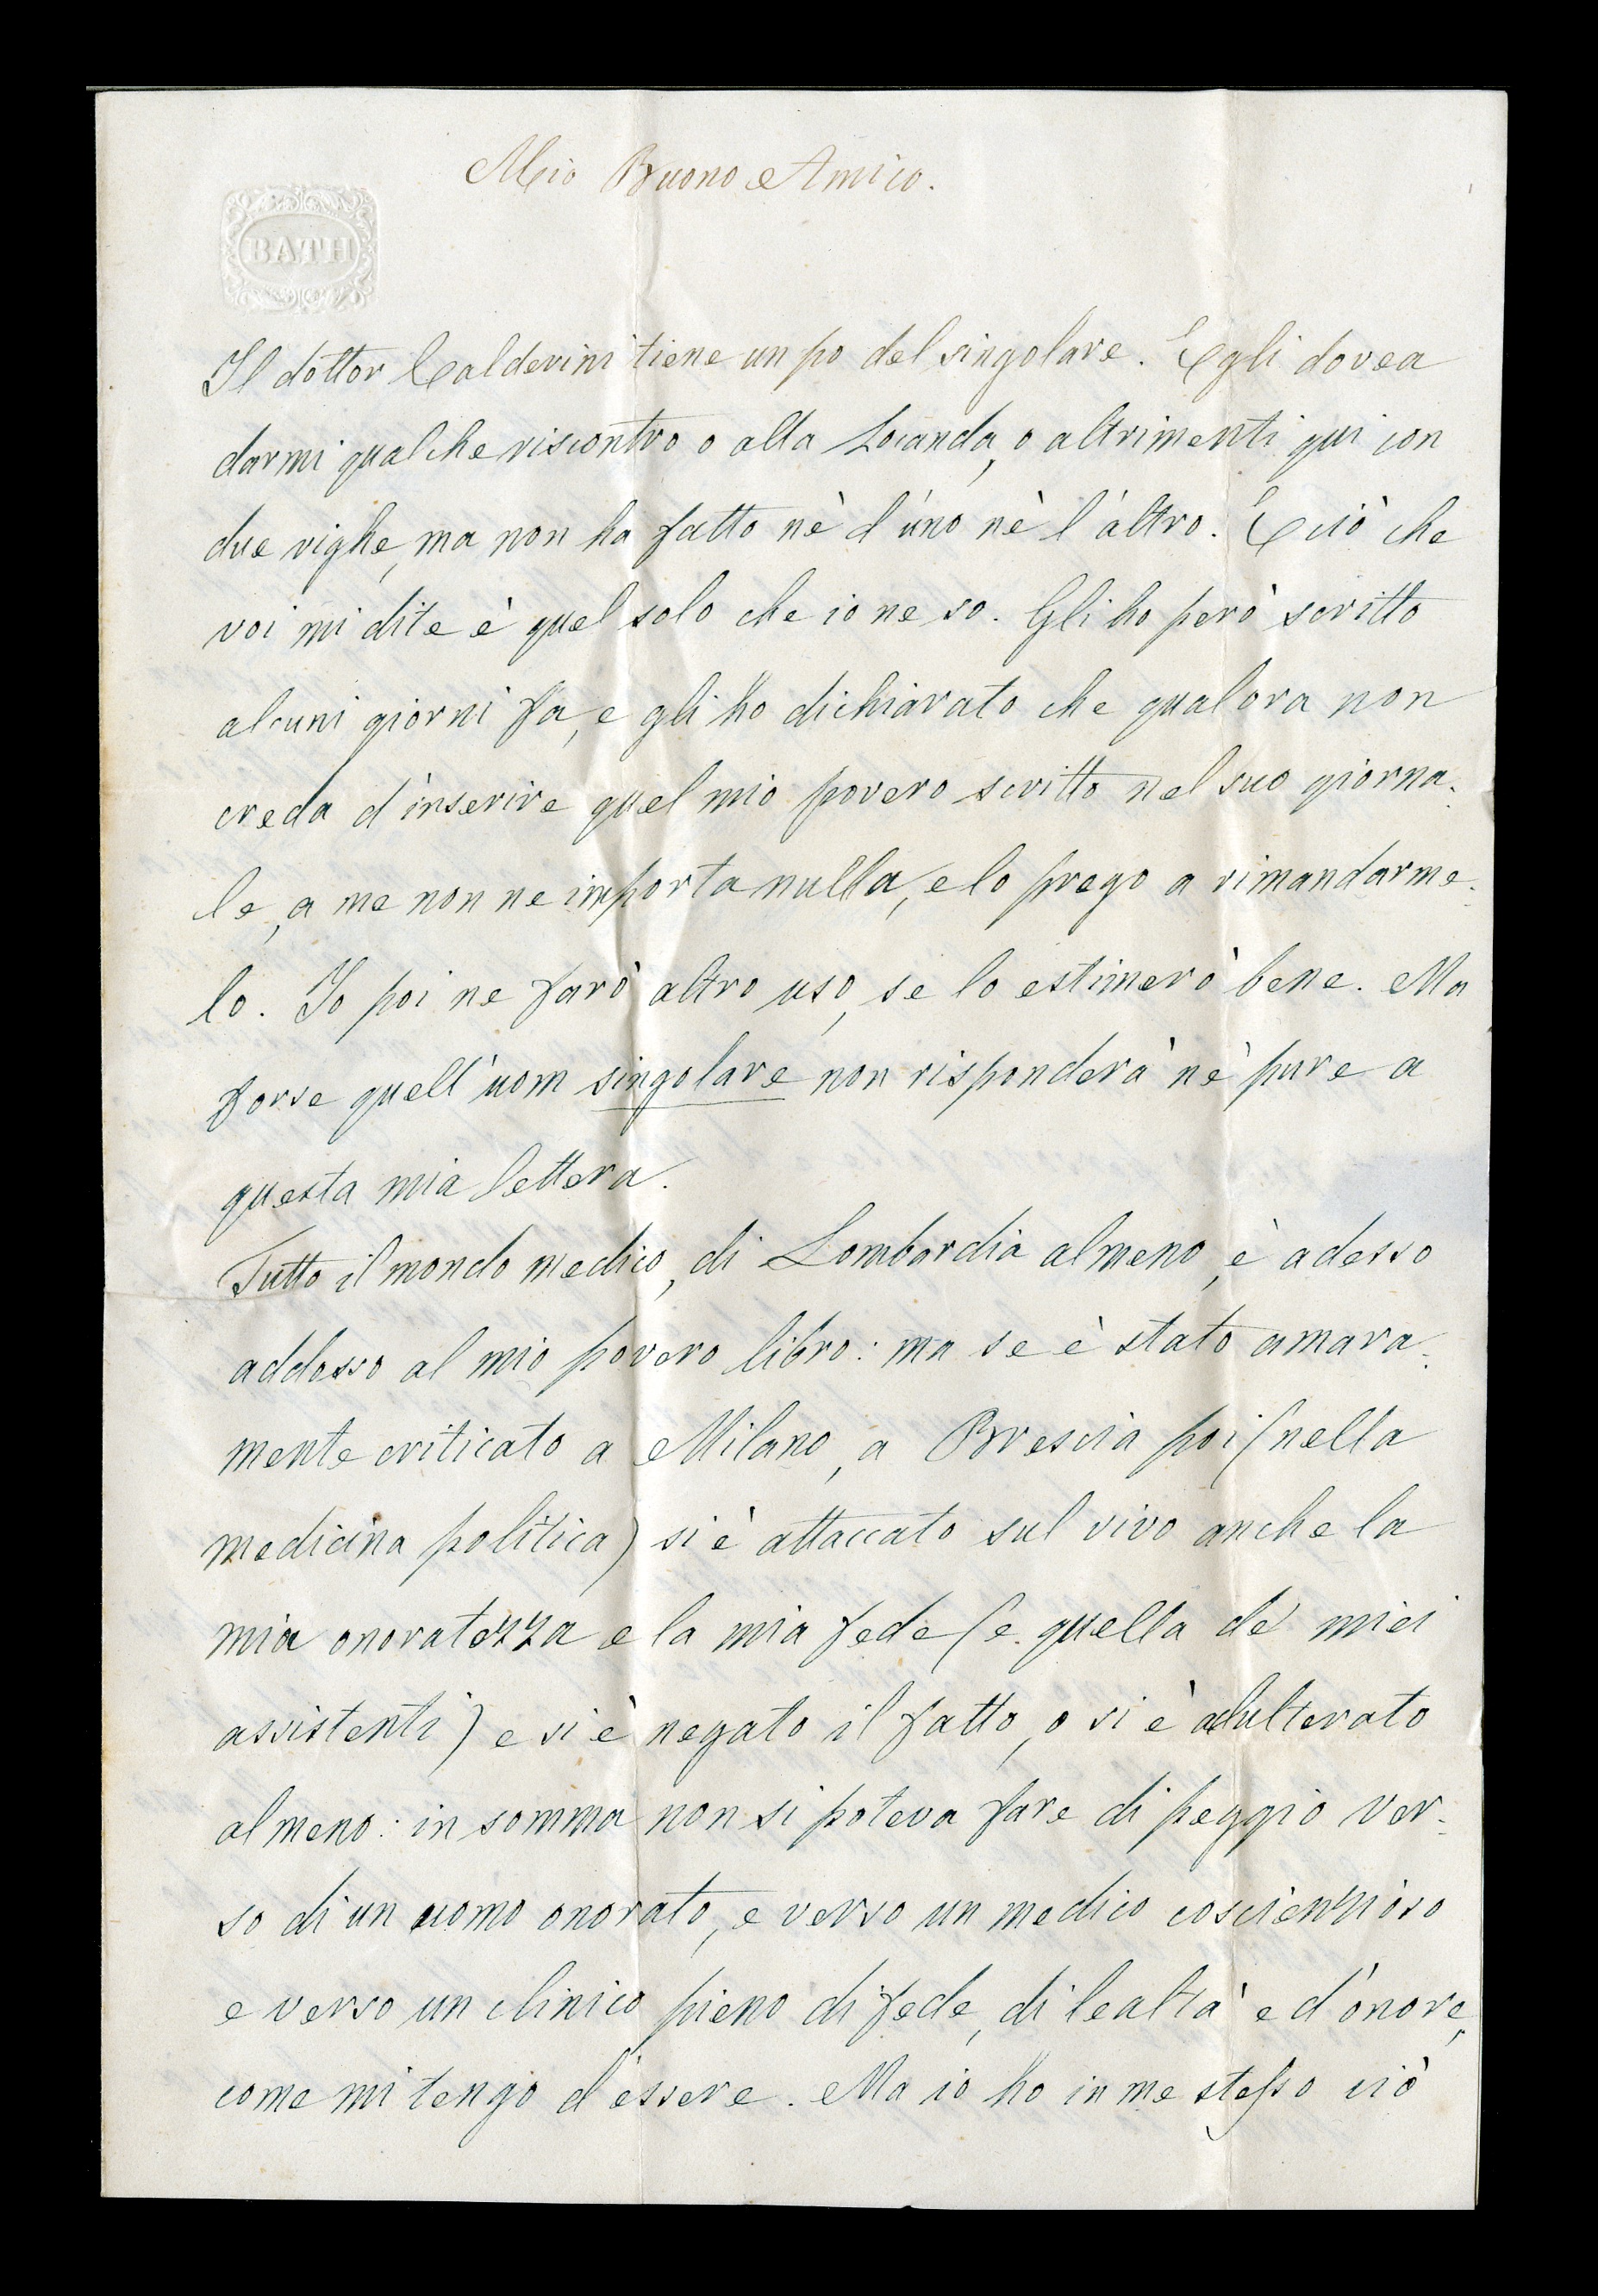 Mio Buono Amico.
BATH
Il dottor Calderini tiene un po del singolare. Egli dovea
darmi qualche riscontro o alla Locanda, o altrimenti qui con
due righe, ma non ha fatto nè l'uno nè l'altro. E ciò che
voi mi dite è quel solo che io ne so. Gli ho però scritto
alcuni giorni fa, e gli ho dichiarato che qualora non
creda d'inserire quel mio povero scritto nel suo giorna-
le, a me non ne importa nulla, e lo prego a rimandarme-
lo. Io poi ne farò altro uso, se lo estimerò bene. Ma
forse quell'uom singolare non risponderà nè pure a
questa mia lettera.
Tutto il mondo medico, di Lombardia almeno, è adesso
addosso al mio povero libro: ma se è stato amara-
mente criticato a Milano, a Brescia poi (nella
medicina politica) si è attaccato sul vivo anche la
mia onoratezza e la mia fede (e quella de' miei
assistenti) e si è negato il fatto, o si è adulterato
almeno: in somma non si poteva fare di peggio ver-
so di un uomo onorato, e verso un medico coscienzioso
e verso un clinico pieno di fede, di lealtà e d'onore,
come mi tengo d'essere. Ma io ho in me stesso ciò